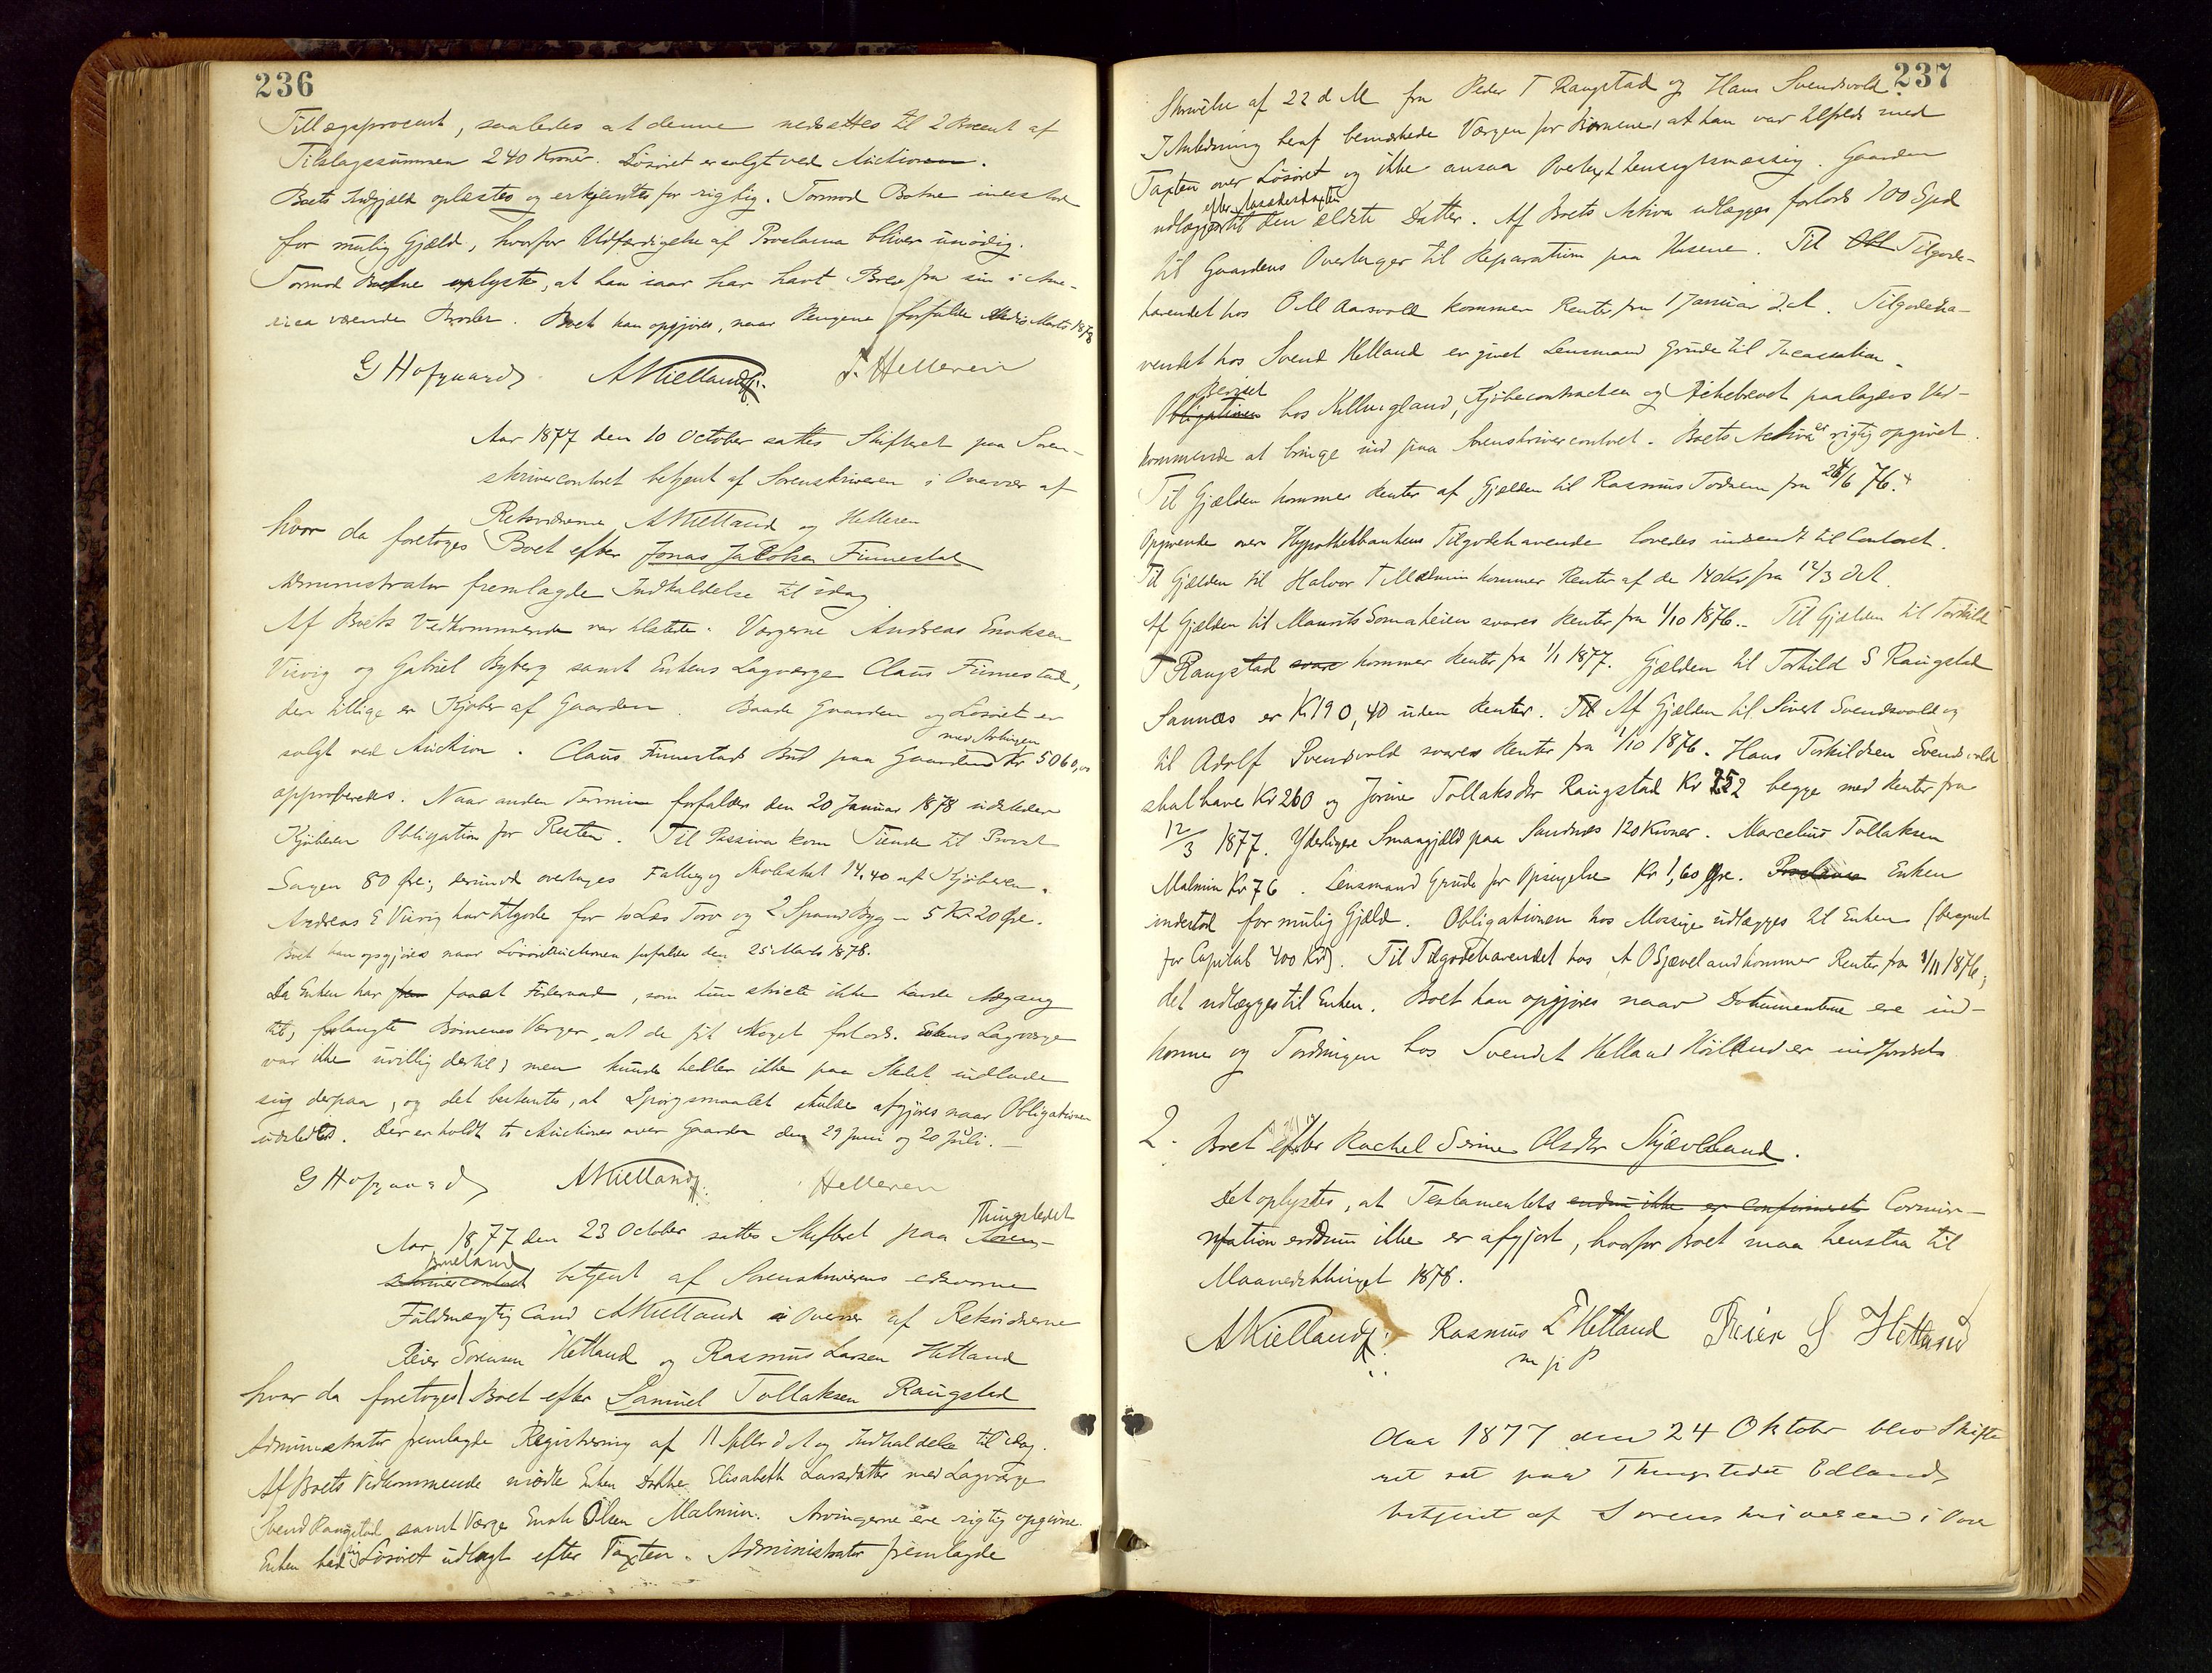 236
Tillægsprocent, saaledes at denne nedsættes til 2 Procent af
Tilslagssummen 240 Kroner. Løsøret er solgt ved Auctionen.
Boets Indgjæld oplæstes og erkjendtes for rigtig. Tormod Botne indestod
for mulig Gjæld, hvorfor Udfærdigelse af Proclama bliver unødig.
Tormod Botne oplyste, at han iaar har havt Brev fra sin i Ame-
rica værende Broder. Boet kan opgjøres, naar Pengene forfalde Marts 1878
G Hofgaard AKielland T. Helleren
Aar 1877 den 10 October sattes Skifteret paa Soren-
skrivercontoret betjent af Sorenskriveren i Overvær af
Retsvidnerne AKielland og Helleren
hvor da foretoges Boet efter Jonas Jacobsen Finnestad
Administrator fremlagde Indkaldelse til idag
Af Boets Vedkommende var tilstede. Værgerne Andreas Enoksen
Vievig og Gabriel Byberg samt Enkens Lagværge Claus Finnestad,
der tillige er Kjøber af Gaarden. Baade Gaarden og Løsøret er
solgt ved Auction. Claus Finnestads Bud paa Gaarden med Kr 5060,00
approberedes. Naar anden Termin forfalder den 20 Januar 1878 udsteder
Kjøberen Obligation for Resten. Til Passiva kom Tiende til Provst
Sagen 80 Øre; desuden overtages Fattig og Skoleskat 14.40 af Kjøberen.
Andreas E Vievig har tilgode for 10 Læs Torv og 2 Spand Byg - 5 Kr 20 Øre.
Boet kan opgjøres naar Løsøreauctionen forfalder den 25 Marts 1878.
Da Enken har faaet Føderaad, som hun strict ikke havde Adgang
til, forlangte Børnenes Værger, at de fik Noget forlods. Enkens Lagværge
var ikke uvillig dertil, men kunde heller ikke paa Stedet indlade
sig derpaa, og det bestemtes, at Spørgsmaalet skulde afgjøres naar Obligationen
udstedtes. Der er holdt to Auctioner over Gaarden den 29 Juni og 20 Juli.
G Hofgaard AKielland Helleren
Aar 1877 den 23 October sattes Skifteret paa Thingstedet Soren-
Bueland skrivercontoret betjent af Sorenskriverens edsvorne
Fuldmægtig Cand AKielland i Overvær af Retsvidnerne
Peier Sørensen Hetland og Rasmus Larsen Hetland
hvor da foretoges 1 Boet efter Samuel Tollaksen Raugstad
Administrator fremlagde Registrering af 11 Septbr d A og Indkaldelse til idag.
Af Boets Vedkommende mødte Enken Elisabeth Larsdatter med Lagværge
Svend Raugstad samt Værge Enok Olsen Malmin. Arvingerne ere rigtig opgivne.
Enken bad sig Løsøret udlagt efter Taxten. Administrator fremlagde
237
Skrivelse af 22 d M fra Peder T Raugstad og Hans Svendsvold.
I Anledning heraf bemærkede Værgen for Børnene, at han var tilfreds med
Taxten over Løsøret og ikke ansaa Overtaxt hensigtsmæssig. Gaarden
udlægges efter Aasædestaxten til den ældste Datter. Af Boets Activa udlægges forlods 100 Spd
til Gaardens Overtager til Reparation paa Husene. Til Tilgode-
havendet hos O M Aarsvold kommer Renter fra 1 Januar d. A. Tilgodeha-
vendet hos Svend Helland er givet Lensmand Grude til Incassation.
Beviset Obligationen hos Killingland, Kjøbecontracten og Fæstebrevet paalagdes Ved-
kommende at bringe ind paa Sorenskrivercontoret. Boets Activa er rigtig opgivet.
Til Gjælden kommer Renter af Gjælden til Rasmus Todnem fra 26/6 76.
Opgivende over Hypothekbankens Tilgodehavende lovedes indsendt til Contoret.
Til Gjælden til Halvor T Malmin kommer Renter af de 140 Kr fra 12/3 d A
Af Gjælden til Maurits Somaheien svares Renter fra 1/10 1876. Til Gjælden til Torkild
T Raugstad svare kommer Renter fra 1/1 1877. Gjælden til Torkild S Raugstad
Sannæs er K 190,40 uden Renter. Til Af Gjælden til Sivert Svendsvold og
til Adolf Svendsvold svares Renter fra 1/10 1876. Hans Torkildsen Svendsvold
skal have Kr 260 og Jorine Tollaksdtr Raugstad Kr 252 begge med Renter fra
12/3 1877. Yderligere Smaagjæld paa Sandnes 120 Kroner. Marcelius Tollaksen
Malmin Kr 76. Lensmand Grude for Opsigelse Kr 1,60 Øre. Proclama Enken
indestod for mulig Gjæld. Obligationen hos Mossige udlægges til Enken (beregnet
for Capital 400 Kr). Til Tilgodehavendet hos A O Sjæveland kommer Renter fra 1/11 1876;
det udlægges til Enken. Boet kan opgjøres naar Dokumenterne ere ind-
komne og Fordringen hos Svend Helland er indfordret
2. Boet efter Rachel Serine Olsdtr Skjæveland.
Det oplystes, at Testamentets endnu ikke er confirmeret Confir-
mation endnu ikke er afgjort, hvorfor Boet maa henstaa til
Maanedsthinget 1878.
AKielland Rasmus L Hetland Peier S Hetland
m. p. P
Aar 1877 den 24 Oktober blev Skifte
ret sat paa Thingstedet Edland
betjent af Sorenskriveren i Over